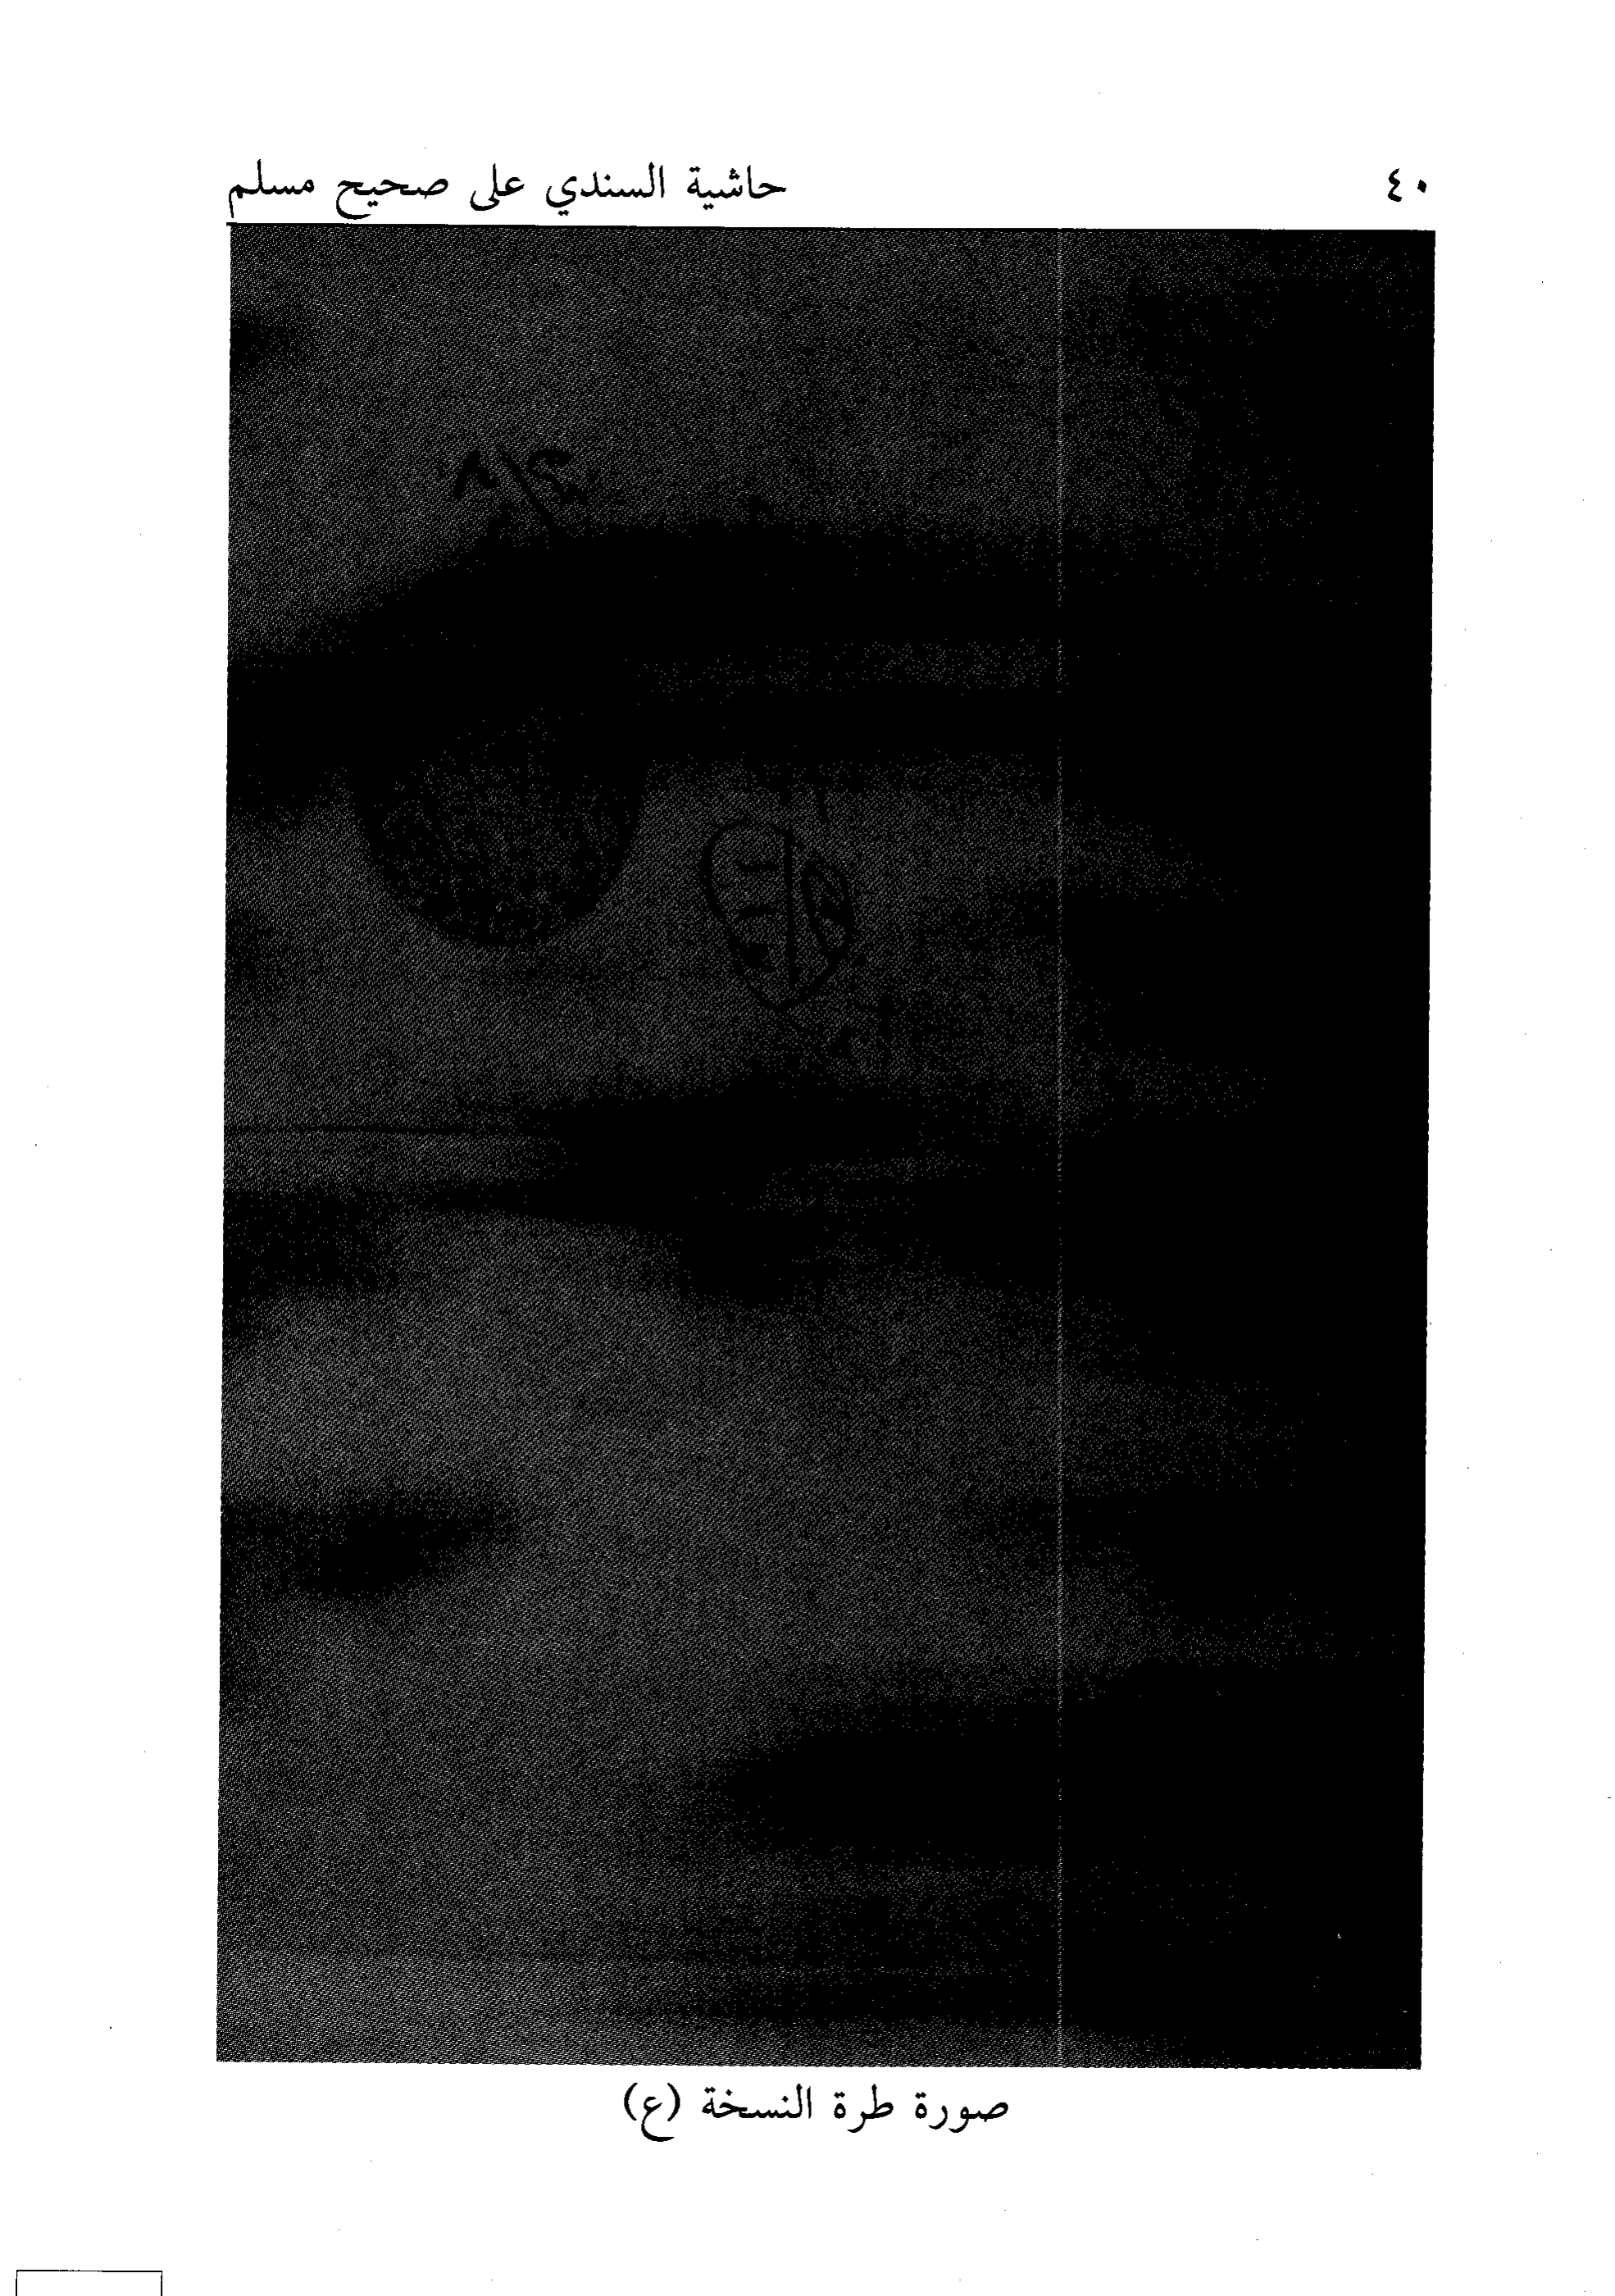 ٤٠ حاشية السندي على صحيح مسلم
صورة طرة النسخة (ع)